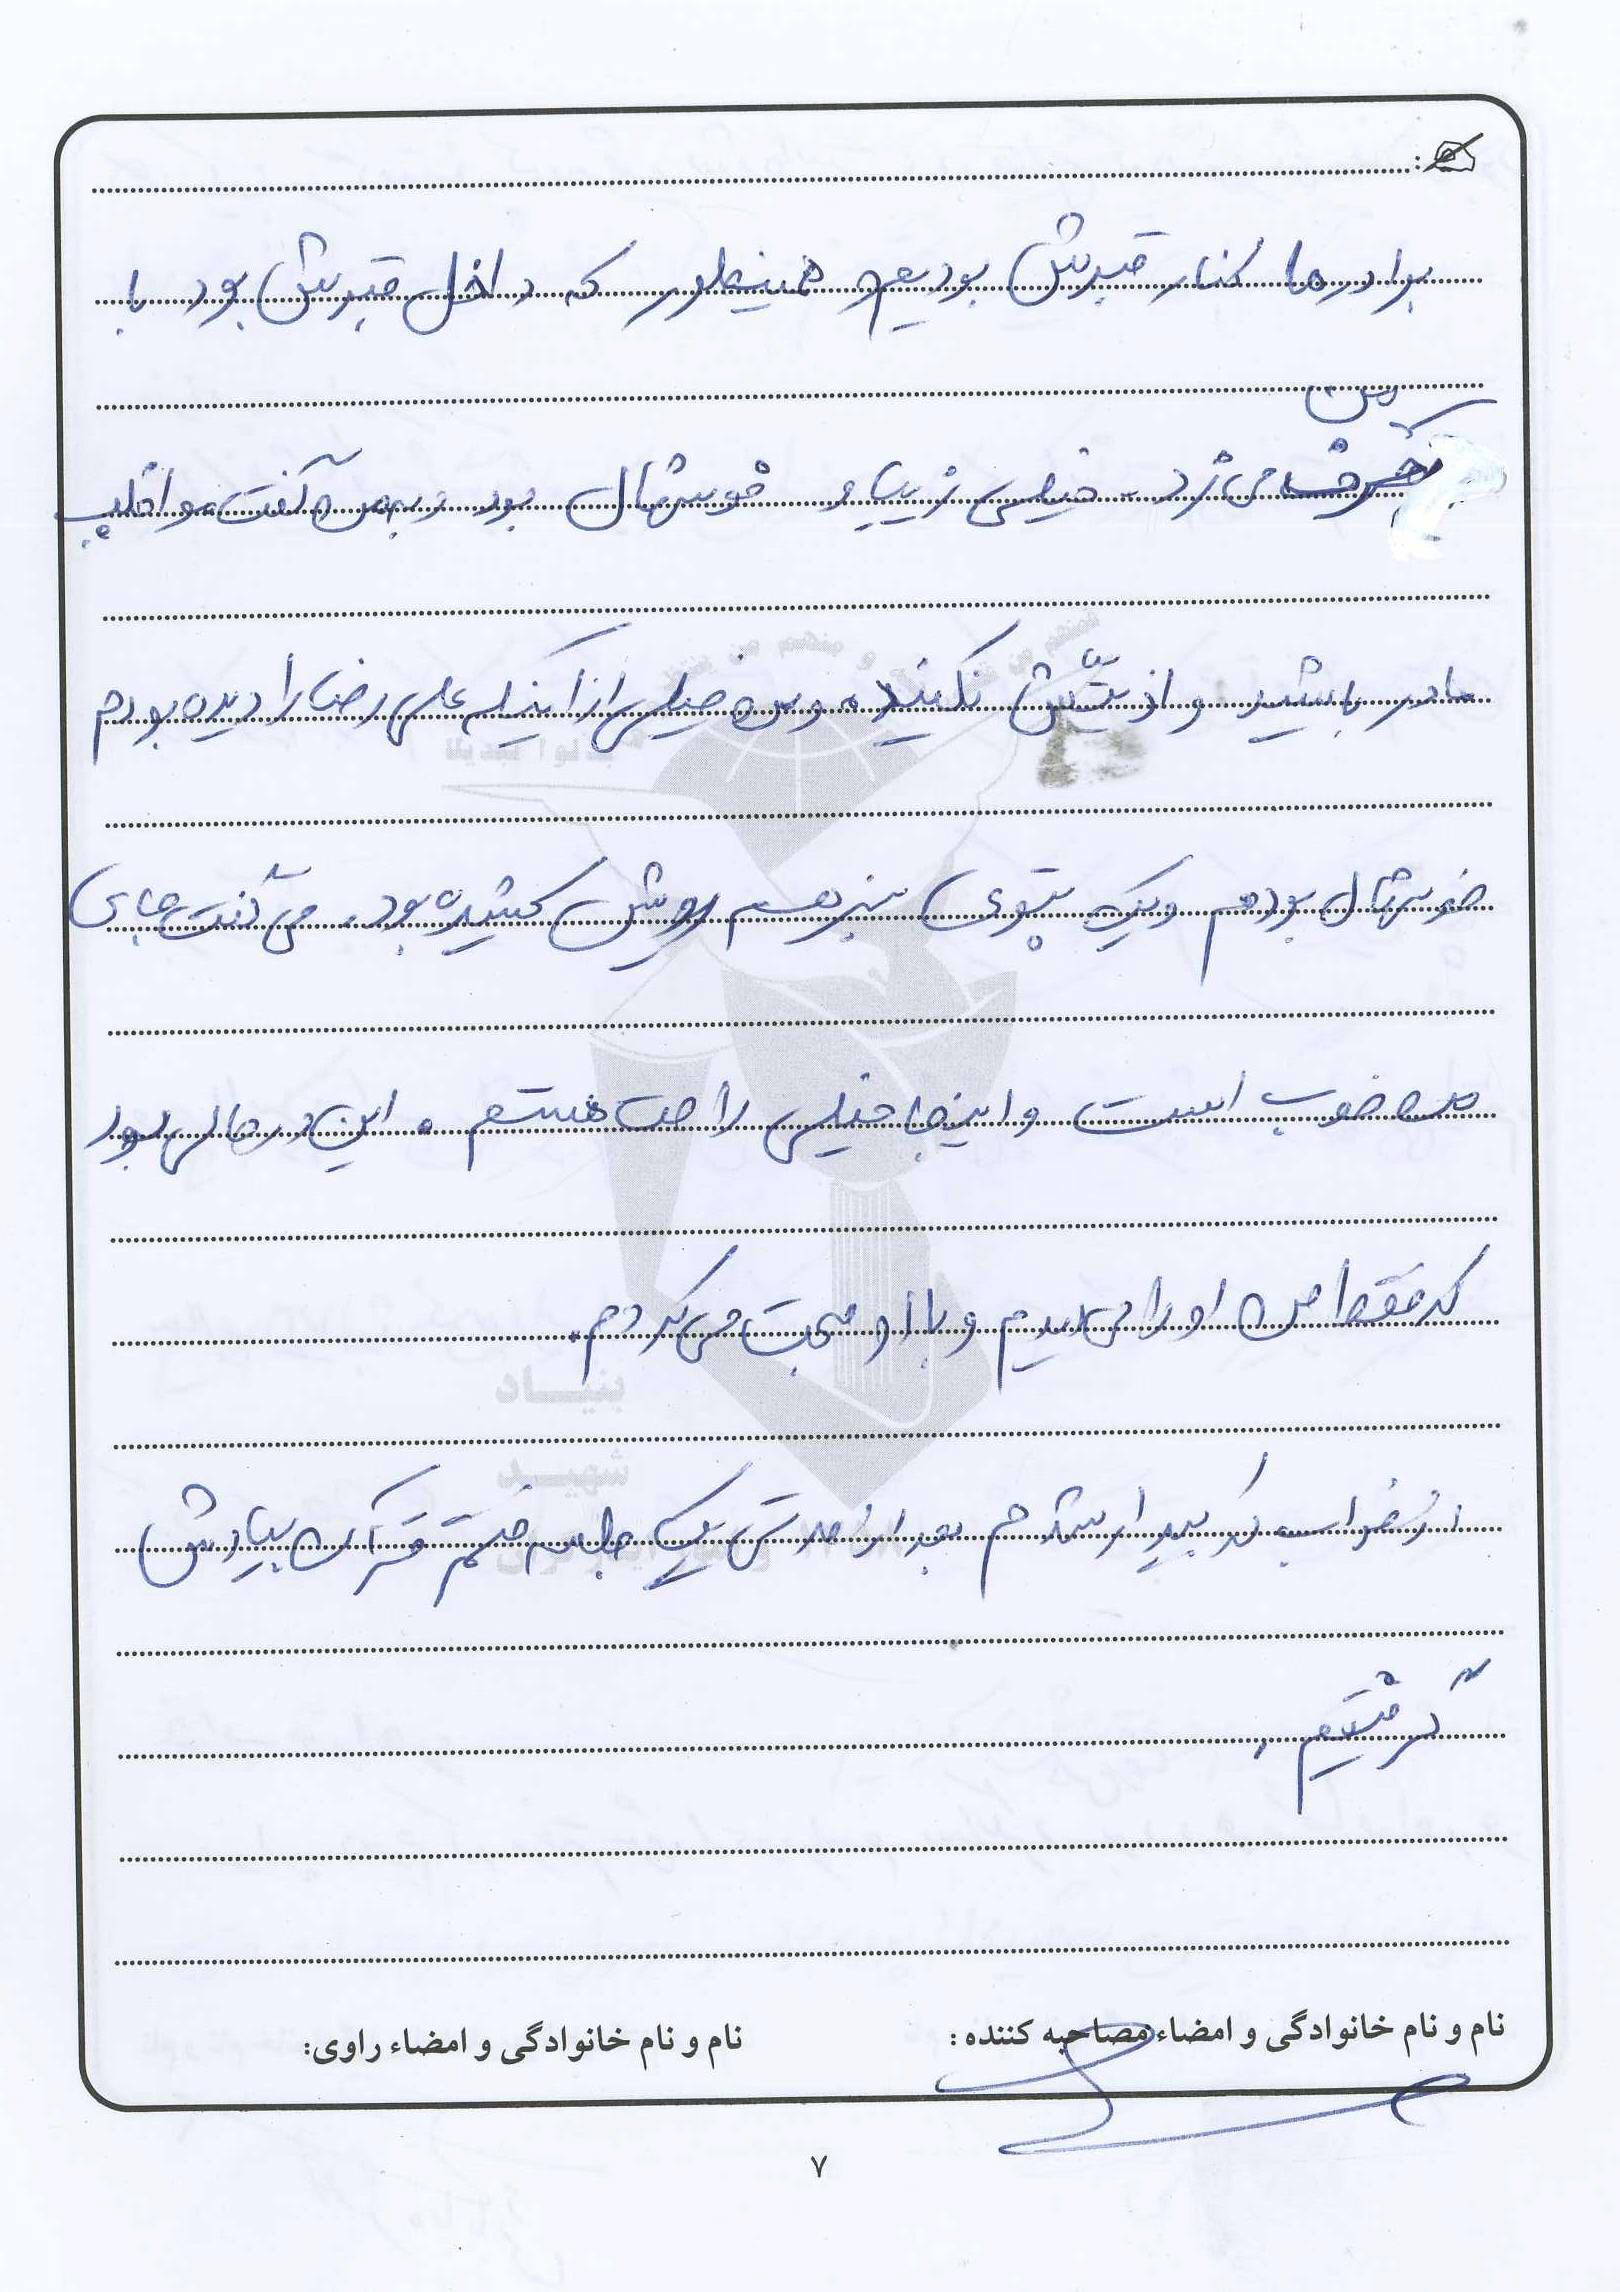 برادرها کنار قبرش بودیم و همینطور که داخل قبرش بود با
من
حرف می زد. خیلی زیبا و خوشحال بود و به من گفت مواظب
مادر باشید و اذیتش نکنید. و من خیلی از اینکه علی رضا را دیده بودم
خوشحال بودم و یک پتوی سبز هم رویش کشیده بود. می گفت جای
من خوب است و اینجا خیلی راحت هستم. این در حالی بود
که فقط من او را می دیدم و با او صحبت می کردم.
از خواب که بیدار شدم بعد از مدتی یک جلسه ختم قرآن بیادش
گرفتیم.
بنیاد
شهید
نام و نام خانوادگی و امضاء مصاحبه کننده:
نام و نام خانوادگی و امضاء راوی:
۷